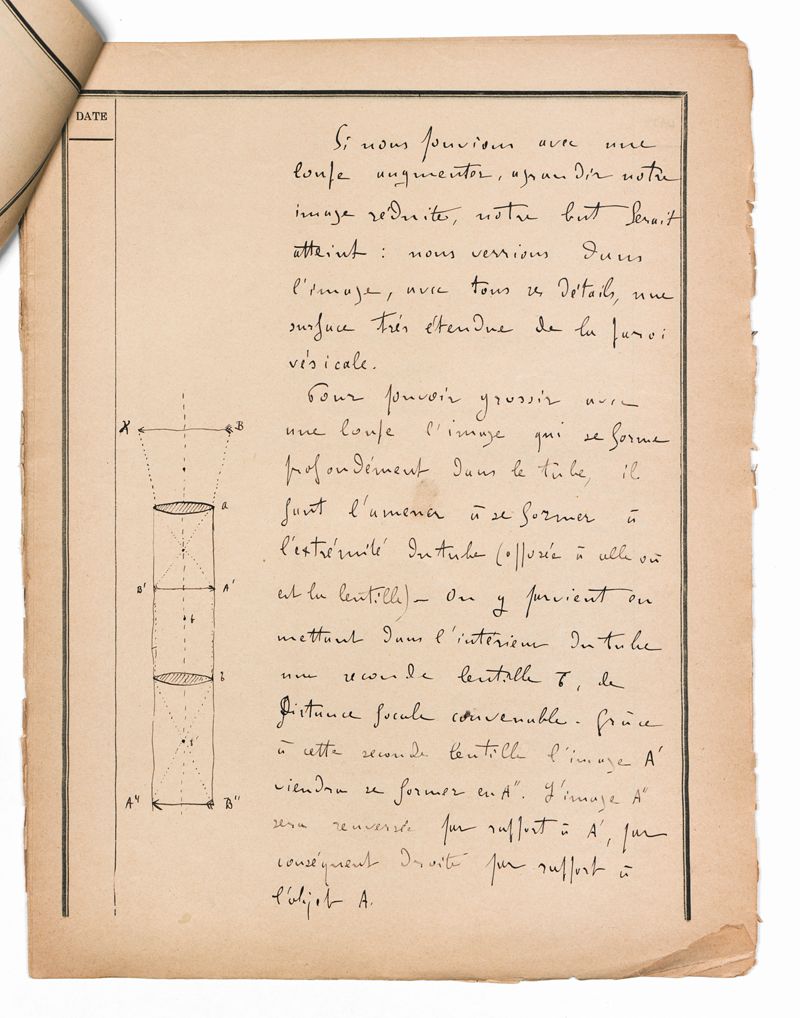 DATE
Si nous pouvions avec une
loupe augmenter, agrandir notre
image réduite, notre but serait
atteint : nous verrions dans
l'image, avec tous ses détails, une
surface très étendue de la paroi
vésicale.
Pour pouvoir grossir avec
une loupe l'image qui se forme
profondément dans le tube, il
faut l'amener à se former à
l'extrémité du tube (opposée à celle où
est la lentille) — On y parvient en
mettant dans l'intérieur du tube
une seconde lentille b, de
distance focale convenable. Grâce
à cette seconde lentille l'image A'
viendra se former en A". L'image A"
sera renversée par rapport à A', par
conséquent droite par rapport à
l'objet A.
A B
a
B' A'
f
b
f'
A" B"